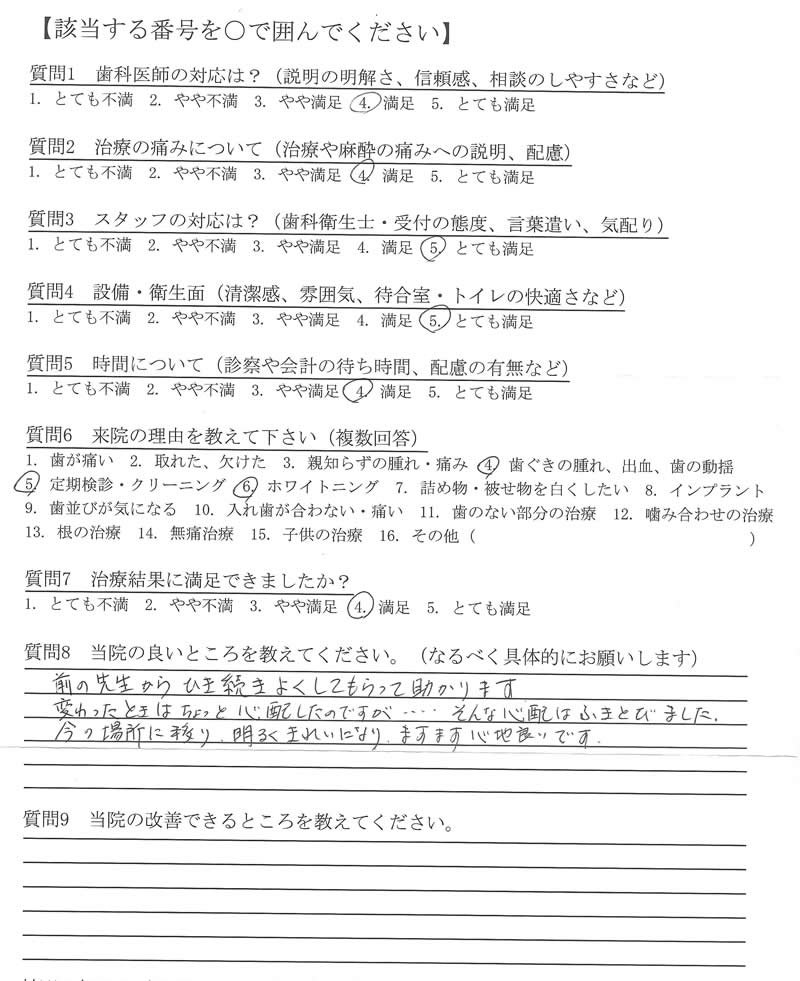 【該当する番号を〇で囲んでください】
質問1　歯科医師の対応は？（説明の明解さ、信頼感、相談のしやすさなど）
1. とても不満　2. やや不満　3. やや満足　4. 満足　5. とても満足
質問2　治療の痛みについて（治療や麻酔の痛みへの説明、配慮）
1. とても不満　2. やや不満　3. やや満足　4. 満足　5. とても満足
質問3　スタッフの対応は？（歯科衛生士・受付の態度、言葉遣い、気配り）
1. とても不満　2. やや不満　3. やや満足　4. 満足　5. とても満足
質問4　設備・衛生面（清潔感、雰囲気、待合室・トイレの快適さなど）
1. とても不満　2. やや不満　3. やや満足　4. 満足　5. とても満足
質問5　時間について（診察や会計の待ち時間、配慮の有無など）
1. とても不満　2. やや不満　3. やや満足　4. 満足　5. とても満足
質問6　来院の理由を教えて下さい（複数回答）
1. 歯が痛い　2. 取れた、欠けた　3. 親知らずの腫れ・痛み　4. 歯ぐきの腫れ、出血、歯の動揺
5. 定期検診・クリーニング　6. ホワイトニング　7. 詰め物・被せ物を白くしたい　8. インプラント
9. 歯並びが気になる　10. 入れ歯が合わない・痛い　11. 歯のない部分の治療　12. 噛み合わせの治療
13. 根の治療　14. 無痛治療　15. 子供の治療　16. その他（　　　）
質問7　治療結果に満足できましたか？
1. とても不満　2. やや不満　3. やや満足　4. 満足　5. とても満足
質問8　当院の良いところを教えてください。（なるべく具体的にお願いします）
前の先生からひき続きよくしてもらって助かります
変わったときはちょっと心配したのですが‥‥そんな心配はふきとびました.
今の場所に移り、明るくきれいになり、ますます心地良いです.
質問9　当院の改善できるところを教えてください。